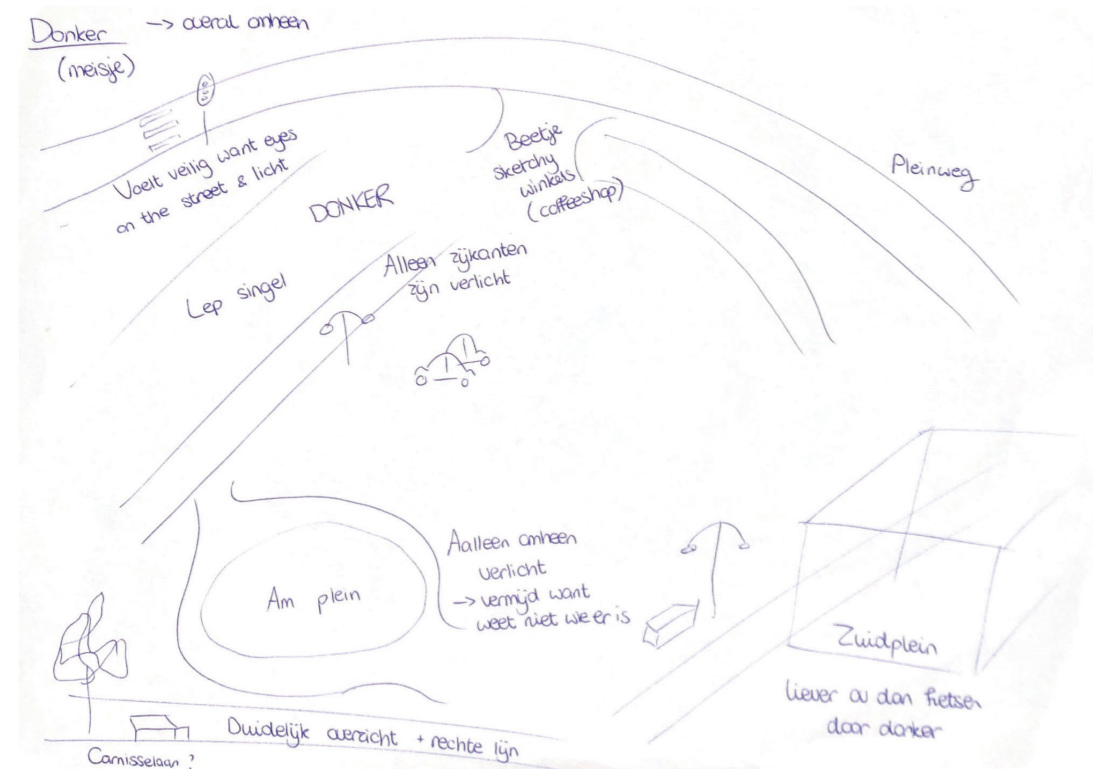 Donker → overal omheen
(meisje)
Voelt veilig want eyes
on the street & licht
DONKER
Beetje
sketchy
winkels
(coffeeshop)
Pleinweg
Lep singel
Alleen zijkanten
zijn verlicht
Am plein
Aalleen omheen
verlicht
→ vermijd want
weet niet wie er is
Zuidplein
liever ov dan fietsen
door donker
Duidelijk overzicht + rechte lijn
Carnisselaan?